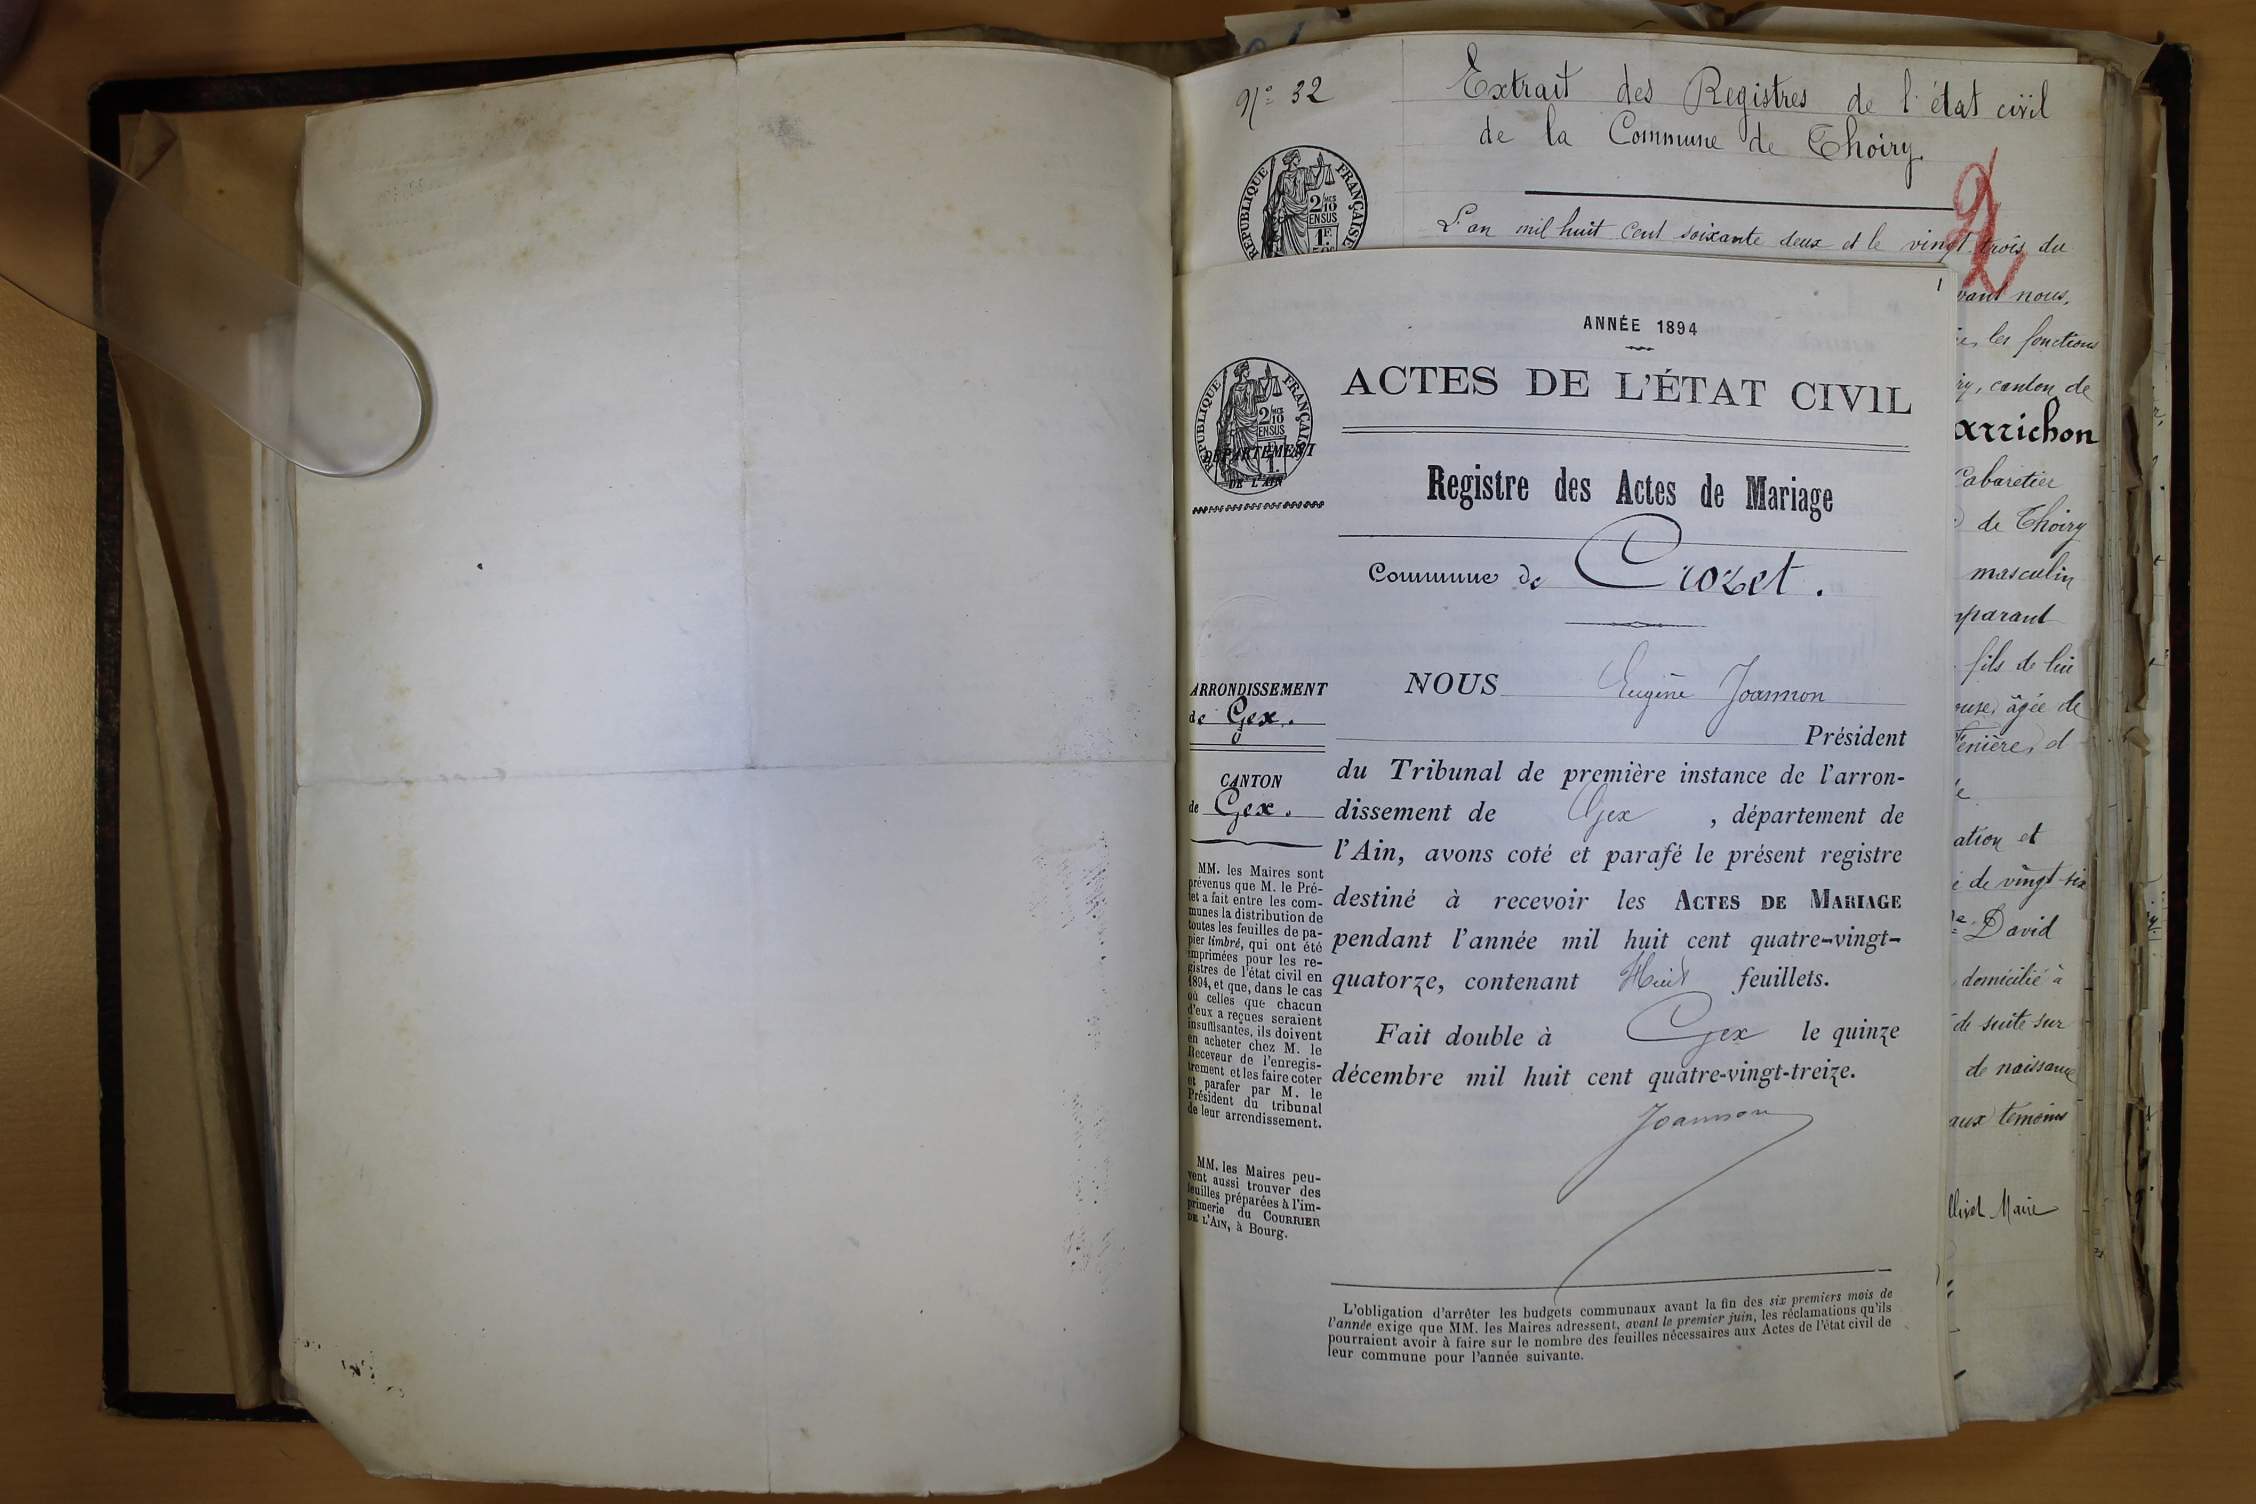 N° 32
Extrait des Registres de l'état civil
de la Commune de Thoiry.
RÉPUBLIQUE FRANÇAISE
2/10
EN SUS
1F
L'an mil huit cent soixante deux et le vingt trois du
vant nous,
les fonctions
ry, canton de
arrichon
Cabaretier
de Thoiry
masculin
mparant
fils de lui
ouse, âgée de
ation et
de vingt-six
David
domicilié à
de suite sur
de naissance
aux témoins
Maire
1
ANNÉE 1894
ACTES DE L'ÉTAT CIVIL
RÉPUBLIQUE FRANÇAISE
2/10
EN SUS
1F
DÉPARTEMENT
DE L'AIN
Registre des Actes de Mariage
Commune de Crozet.
ARRONDISSEMENT
de Gex.
CANTON
de Gex.
MM. les Maires sont
prévenus que M. le Pré-
fet a fait entre les com-
munes la distribution de
toutes les feuilles de pa-
pier timbré, qui ont été
imprimées pour les re-
gistres de l'état civil en
1894, et que, dans le cas
où celles que chacun
d'eux a reçues seraient
insuffisantes, ils doivent
en acheter chez M. le
Receveur de l'enregis-
trement et les faire coter
et parafer par M. le
Président du tribunal
de leur arrondissement.
MM. les Maires peu-
vent aussi trouver des
feuilles préparées à l'im-
primerie du COURRIER
DE L'AIN, à Bourg.
NOUS Eugène Joannon
Président
du Tribunal de première instance de l'arron-
dissement de Gex , département de
l'Ain, avons coté et parafé le présent registre
destiné à recevoir les ACTES DE MARIAGE
pendant l'année mil huit cent quatre-vingt-
quatorze, contenant Huit feuillets.
Fait double à Gex le quinze
décembre mil huit cent quatre-vingt-treize.
Joannon
L'obligation d'arrêter les budgets communaux avant la fin des six premiers mois de
l'année exige que MM. les Maires adressent, avant le premier juin, les réclamations qu'ils
pourraient avoir à faire sur le nombre des feuilles nécessaires aux Actes de l'état civil de
leur commune pour l'année suivante.